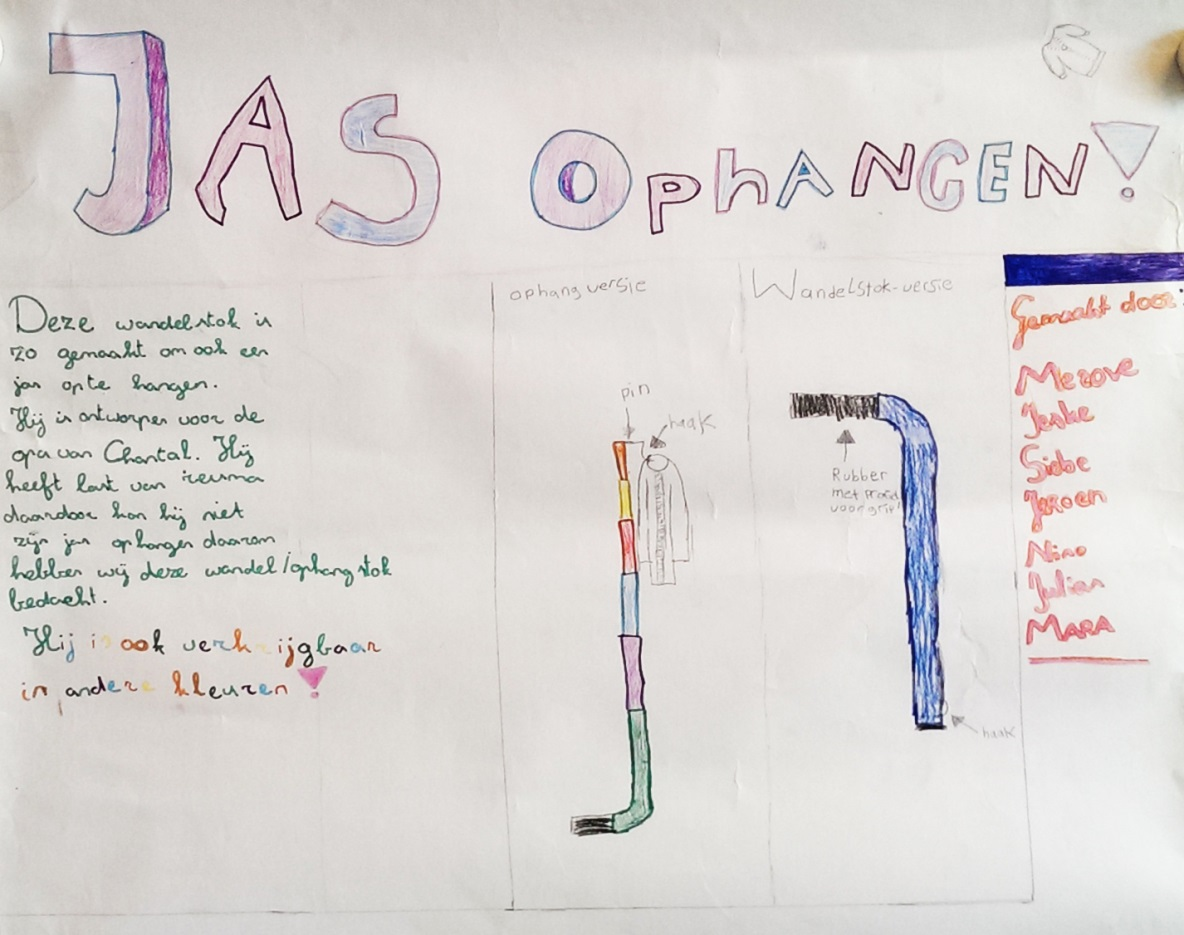 JAS OphANGEN!
Deze wandelstok is
zo gemaakt om ook een
jas op te hangen.
Hij is ontworpen voor de
opa van Chantal. Hij
heeft last van reuma
daardoor kan hij niet
zijn jas ophangen daarom
hebben wij deze wandel/ophang stok
bedacht.
Hij is ook verkrijgbaar
in andere kleuren!
ophang versie
pin
haak
Wandelstok-versie
Rubber
met
voor grip!
haak
Gemaakt door:
Merove
Jeske
Siebe
Jeroen
Nino
Julian
MARA